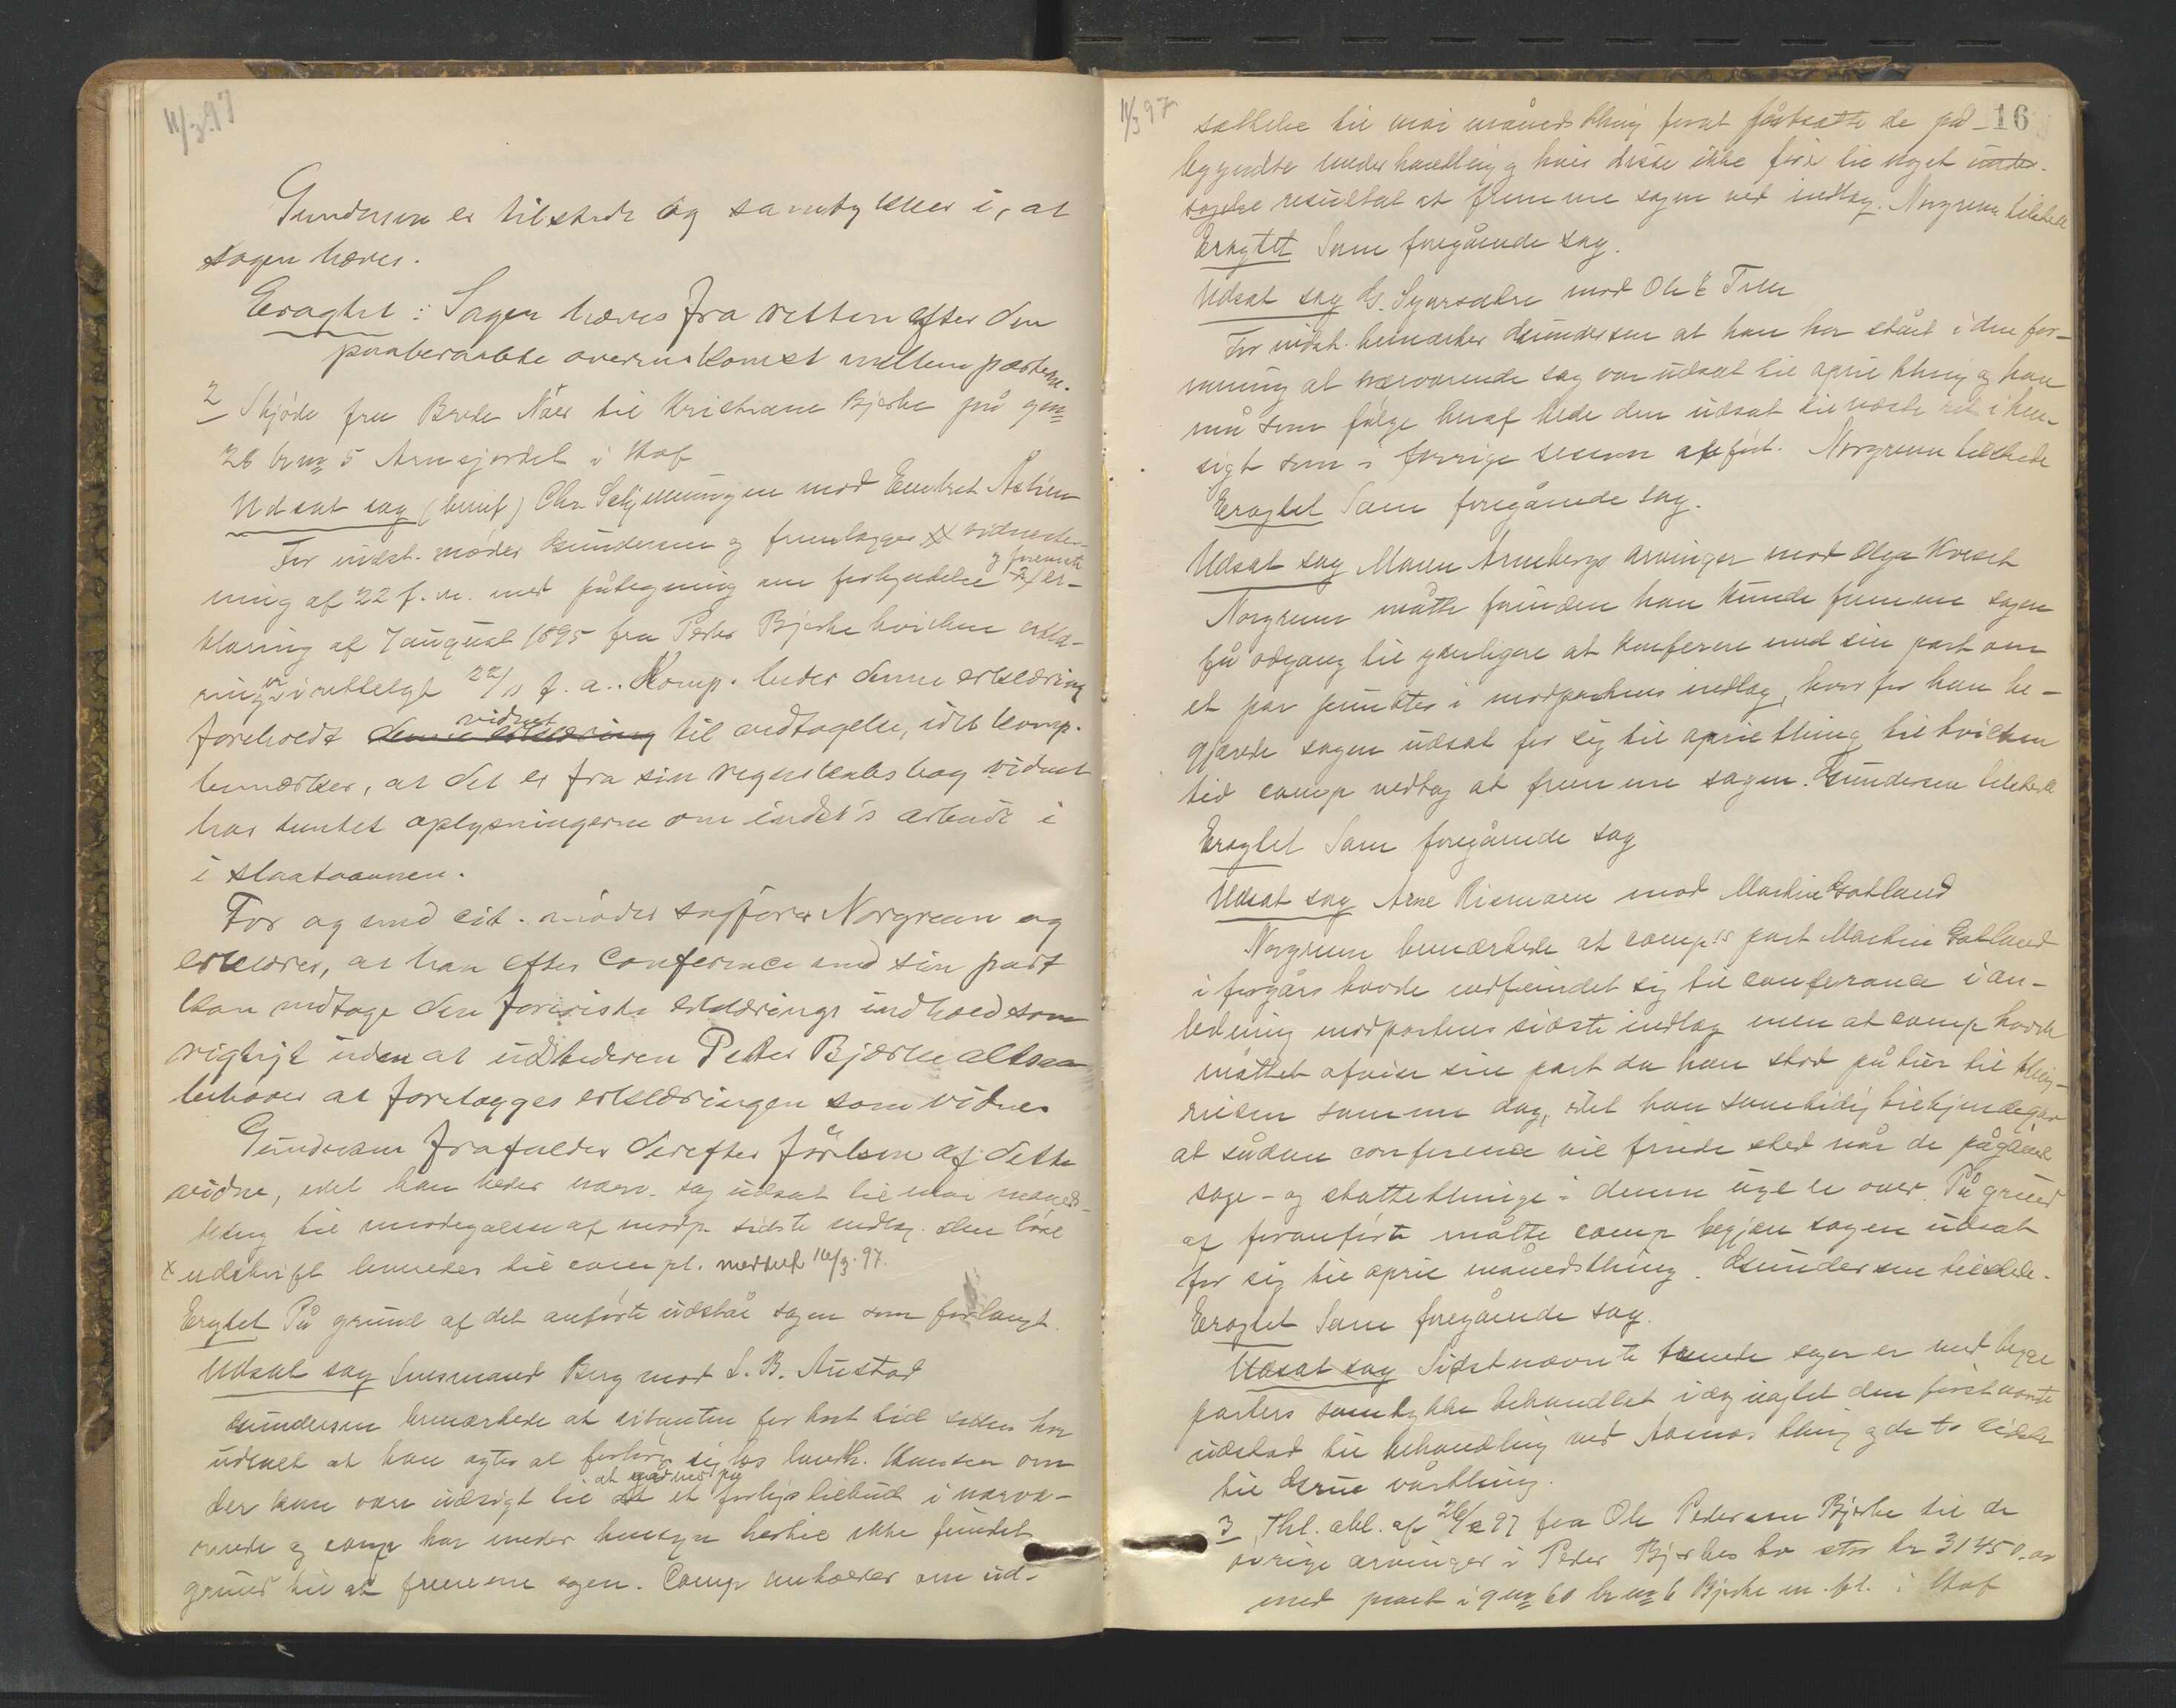 11/3 97
Gundersen er tilstede og samtykker i, at
sagen hæves.
Eragtet: Sagen hæves fra retten efter den
paaberaabte overenskomst mellem parterne.
2 Skjøde fra Brede Näes til Kristiane Bjerke på gnr
26 brnr 5 Arnesjordet i Hof
Udsat sag (benif) Chr. Schjenningen mod Embret Åslien
For indst. møder Gundersen og fremlægger vidnestev-
ning af 22 f. m. med påtegning om forkyndelse og foreviste er-
klæring af 7 august 1895 fra Peder Bjerke hvilken erklæ-
ring er irettelagt 22/ f. a.. Komp. beder denne erklæring
foreholdt vidnet til vedtagelse, idet komp.
bemærker, at det er fra sin regnskabsbog vidnet
har hentet oplysningerne om indst's arbeide i
i slaataannen.
For og med cit. møder sagfører Norgreen og
erklærer, at han efter conference med sin part
kan vedtage den foreviste erklærings indhold som
rigtigt uden at udbederen Peder Bjørke altsaa
behøver at forelægges erklæringen som vidne.
Gundersen frafalder derefter førelsen af dette
vidne, idet han beder nærv. sag udsat til mai måneds-
thing til imødegaaelse af modp. sidste indlæg. Den løse
x udskrift leveredes til compl. meddelt 16/3. 97.
Eragtet På grund af det anførte udstår sagen som forlangt.
Udsat sag Lensmand Berg mod L. B. Austad
Gundersen bemærkede at citanten for kort tid siden har
udtalt at han agter at forhøre sig hos landh. Hansen om
der kan være udsigt til at gå ned på et forligstilbud i nærvæ-
rende og comp har under hensyn hertil ikke fundet
grund til at fremme sagen. Comp anholder om ud-
11/3 97
16
sættelse til mai månedsthing forat fortsætte de på-
begyndte underhandling og hvis disse ikke fører til noget
resultat at fremme sagen ved indlæg. Norgreen tilstede
Eragtet Som foregående sag.
Udsat sag G. Syversætre mod Ole E Tren
For indst. bemærker Gundersen at han har stået i den for-
mening at nærværende sag var udsat til april thing og han
må som følge heraf bede den udsat til næste ret i hen-
sigt som i forrige session anført. Norgreen tilstede
Eragtet Som foregående sag.
Udsat sag Maren Arnebergs arvinger mod Olga Kveset
Norgreen måtte forinden han kunde fremme sagen
få adgang til yderligere at konferere med sin part om
et par punkter i modpartens indlæg, hvorfor han be-
gjærede sagen udsat for sig til april thing til hvilken
tid comp vedtog at fremme sagen. Gundersen tilstede
Eragtet Som foregående sag
Udsat sag Arne Rismoen mod Martin Gotland
Norgreen bemærkede at comp's part Martin Gotland
i forgårs havde indfundet sig til conferance i an-
ledning modpartens sidste indlæg men at comp havde
måttet afvise sin part da han stod på tur til thing-
reisen samme dag, idet han samtidig tilkjendegav
at sådan conference vil finde sted når de pågående
sage- og skattethinge i denne uge er over. På grund
af foranførte måtte comp begjære sagen udsat
for sig til april månedsthing. Gundersen tilstede.
Eragtet Som foregående sag.
Udsat sag Sidstnævnte sager er med begge
parters samtykke behandlet idag uagtet den førstnævnte
udstod til behandling ved Aasnes thing og de to sidste
til Grue vårthing.
3 Thl. obl. af 26/2 97 fra Ole Pedersen Bjerke til de
øvrige arvinger i Peder Bjerkes bo stor kr 31450.00
med pant i gnr 60 brnr 6 Bjerke m. fl. i Hof